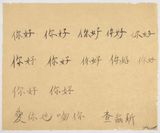 你好 你好 你好 你好 你好
你好 你好 你好 你好 你好
你好 你好
愛你也吻你